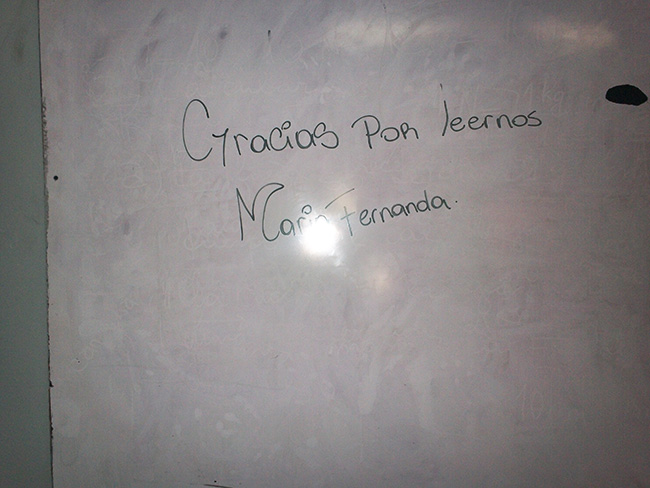 Gracias Por leernos
Maria Fernanda.